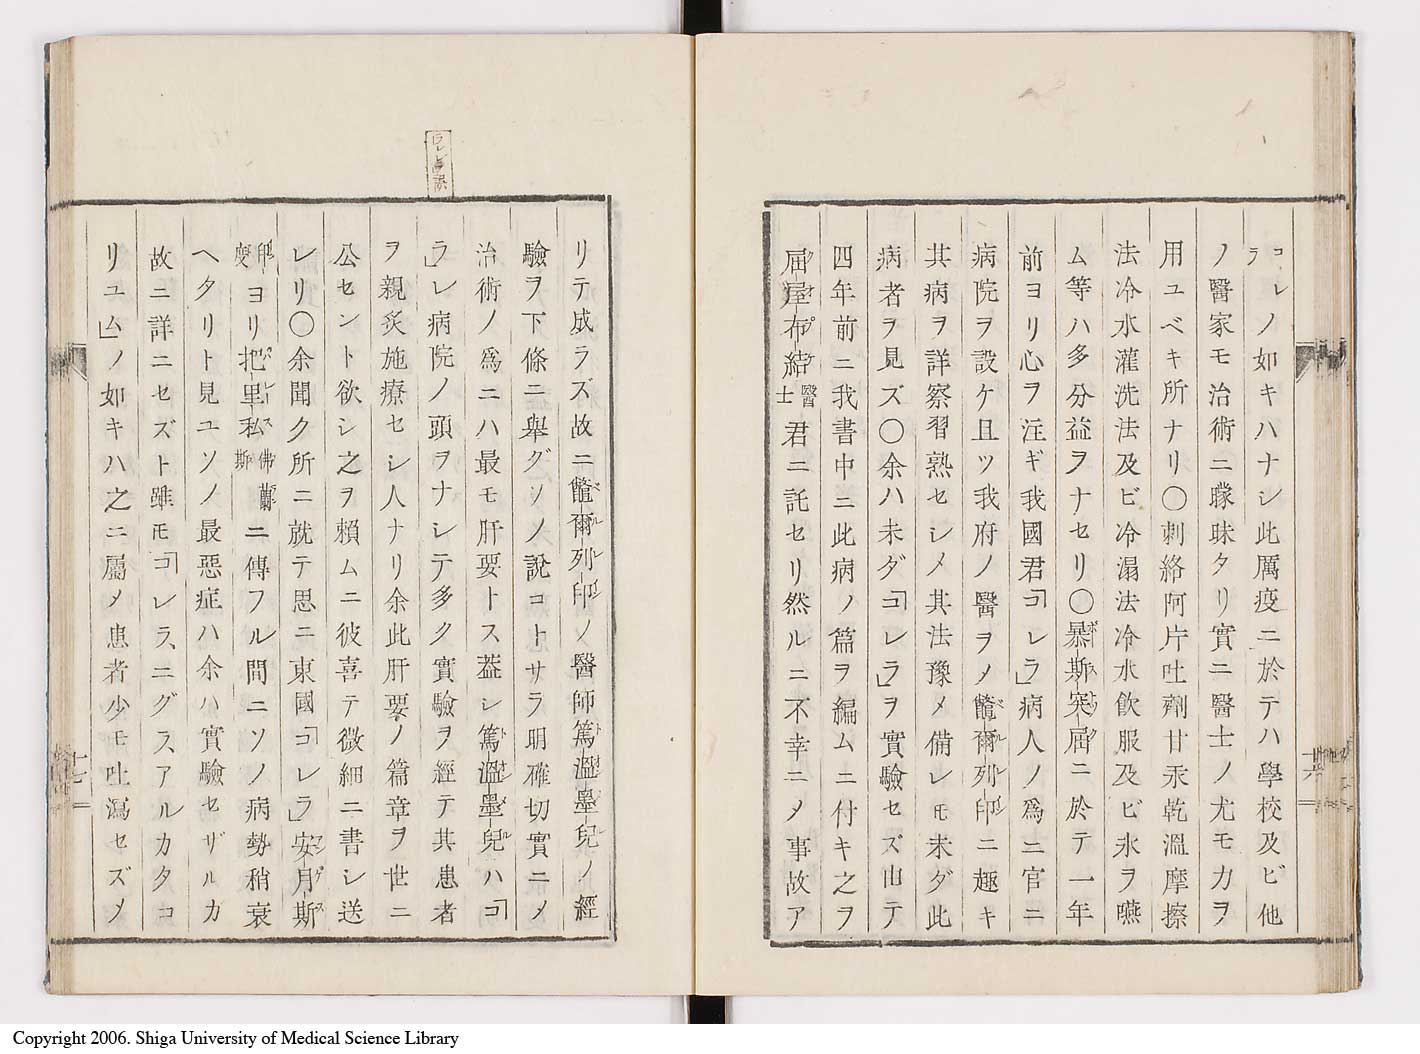 コレラノ如キハナシ此厲疫ニ於テハ學校及ビ他
ノ醫家モ治術ニ矇昧タリ實ニ醫士ノ尤モ力ヲ
用ユベキ所ナリ〇刺絡阿片吐劑甘汞乾溫摩擦
法冷水灌洗法及ビ冷溻法冷水飮服及ビ氷ヲ嚥
ム等ハ多分益ヲナセリ〇暴斯窠屈ニ於テ一年
前ヨリ心ヲ注ギ我國君「コレラ」病人ノ爲ニ官ニ
病院ヲ設ケ且ツ我府ノ醫ヲメ鼈爾列印ニ趣キ
其病ヲ詳察習熟セシメ其法豫メ備レモ未ダ此
病者ヲ見ズ〇余ハ未ダ「コレラ」ヲ實驗セズ山テ
四年前ニ我書中ニ此病ノ篇ヲ編ムニ付キ之ヲ
屈屋布結醫士君ニ託セリ然ルニ不幸ニメ事故ア
リテ成ラズ故ニ鼈爾列印ノ醫師篤溫墨兒ノ經
驗ヲ下條ニ舉グソノ說コトサラ明確切實ニメ
治術ノ爲ニハ最モ肝要トス葢シ篤溫墨兒ハ「コ
ラ」レ病院ノ頭ヲナシテ多ク實驗ヲ經テ其患者
ヲ親炙施療セシ人ナリ余此肝要ノ篇章ヲ世ニ
公セント欲シ之ヲ賴ムニ彼喜テ微細ニ書シ送
レリ〇余聞ク所ニ就テ思ニ東國「コレラ」安月斯
印度ヨリ把里私佛蘭斯ニ傳フル間ニソノ病勢稍衰
ヘタリト見ユソノ最惡症ハ余ハ實驗セザルカ
故ニ詳ニセズト雖モ「コレラ、ニグス、アルカタコ
リユム」ノ如キハ之ニ屬メ患者少モ吐瀉セズメ
十六
十七
Copyright 2006. Shiga University of Medical Science Library